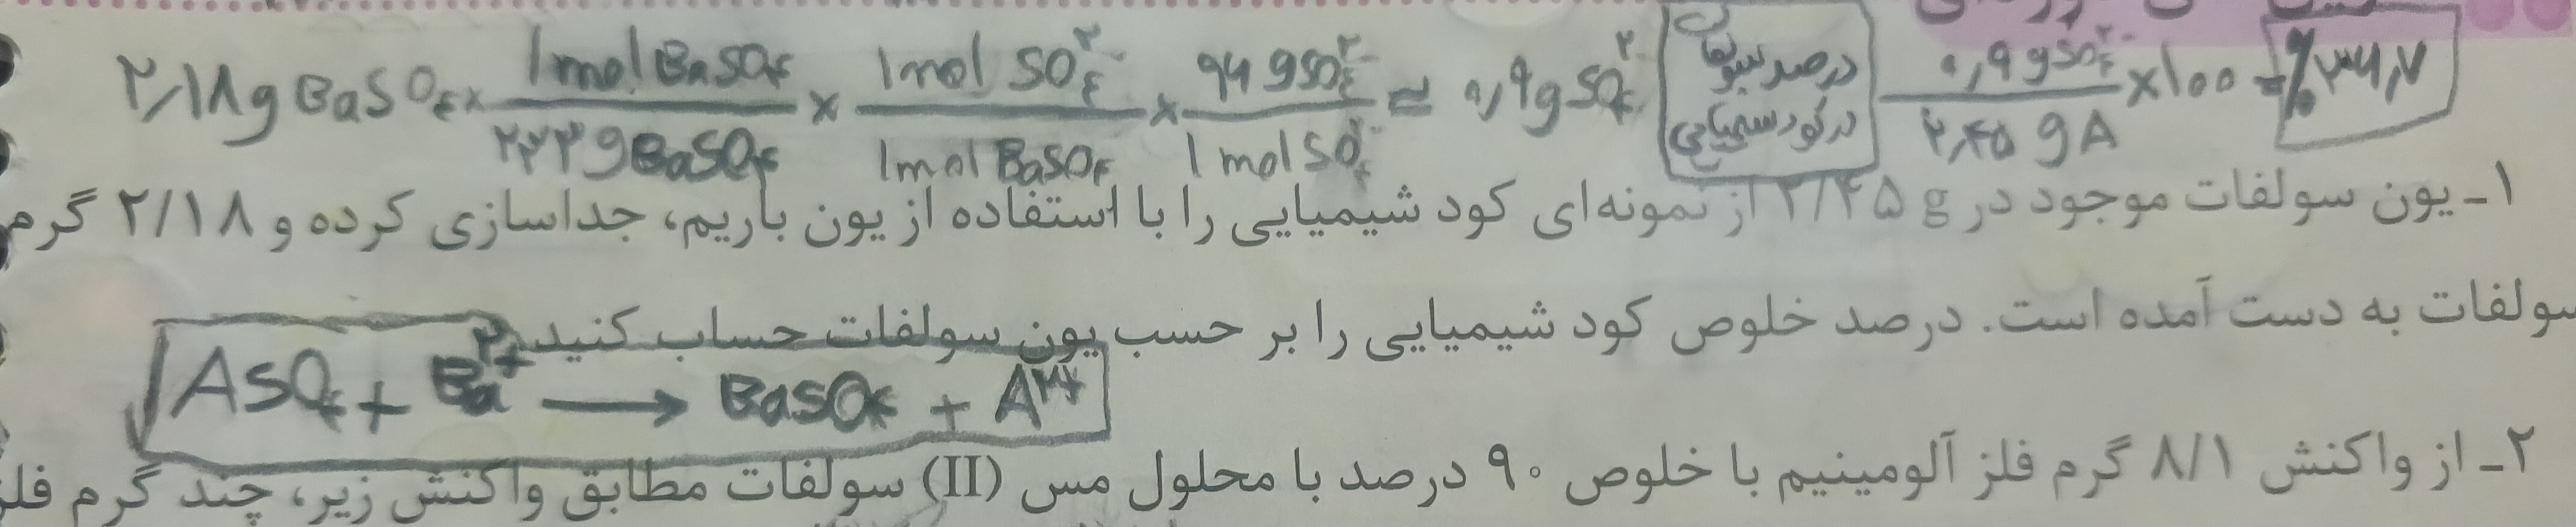 ۲,۱۸g BaSO۴ × 1mol BaSO۴ / ۲۳۳g BaSO۴ × 1mol SO۴²⁻ / 1mol BaSO۴ × ۹۶gSO۴²⁻ / 1molSO۴²⁻ ≈ ۰,۹gSO۴²⁻
درصد سولفات در کود شیمیایی
۰,۹gSO۴²⁻ / ۲,۴۵gA × ۱۰۰ = %۳۶,۷
۱ـ یون سولفات موجود در ۲/۴۵ g از نمونه‌ای کود شیمیایی را با استفاده از یون باریم، جداسازی کرده و ۲/۱۸ گرم
سولفات به دست آمده است. درصد خلوص کود شیمیایی را بر حسب یون سولفات حساب کنید.
ASO۴ + Ba²⁺ → BaSO۴ + A²⁺
۲ـ از واکنش ۸/۱ گرم فلز آلومینیم با خلوص ۹۰ درصد با محلول مس (II) سولفات مطابق واکنش زیر، چند گرم فلز